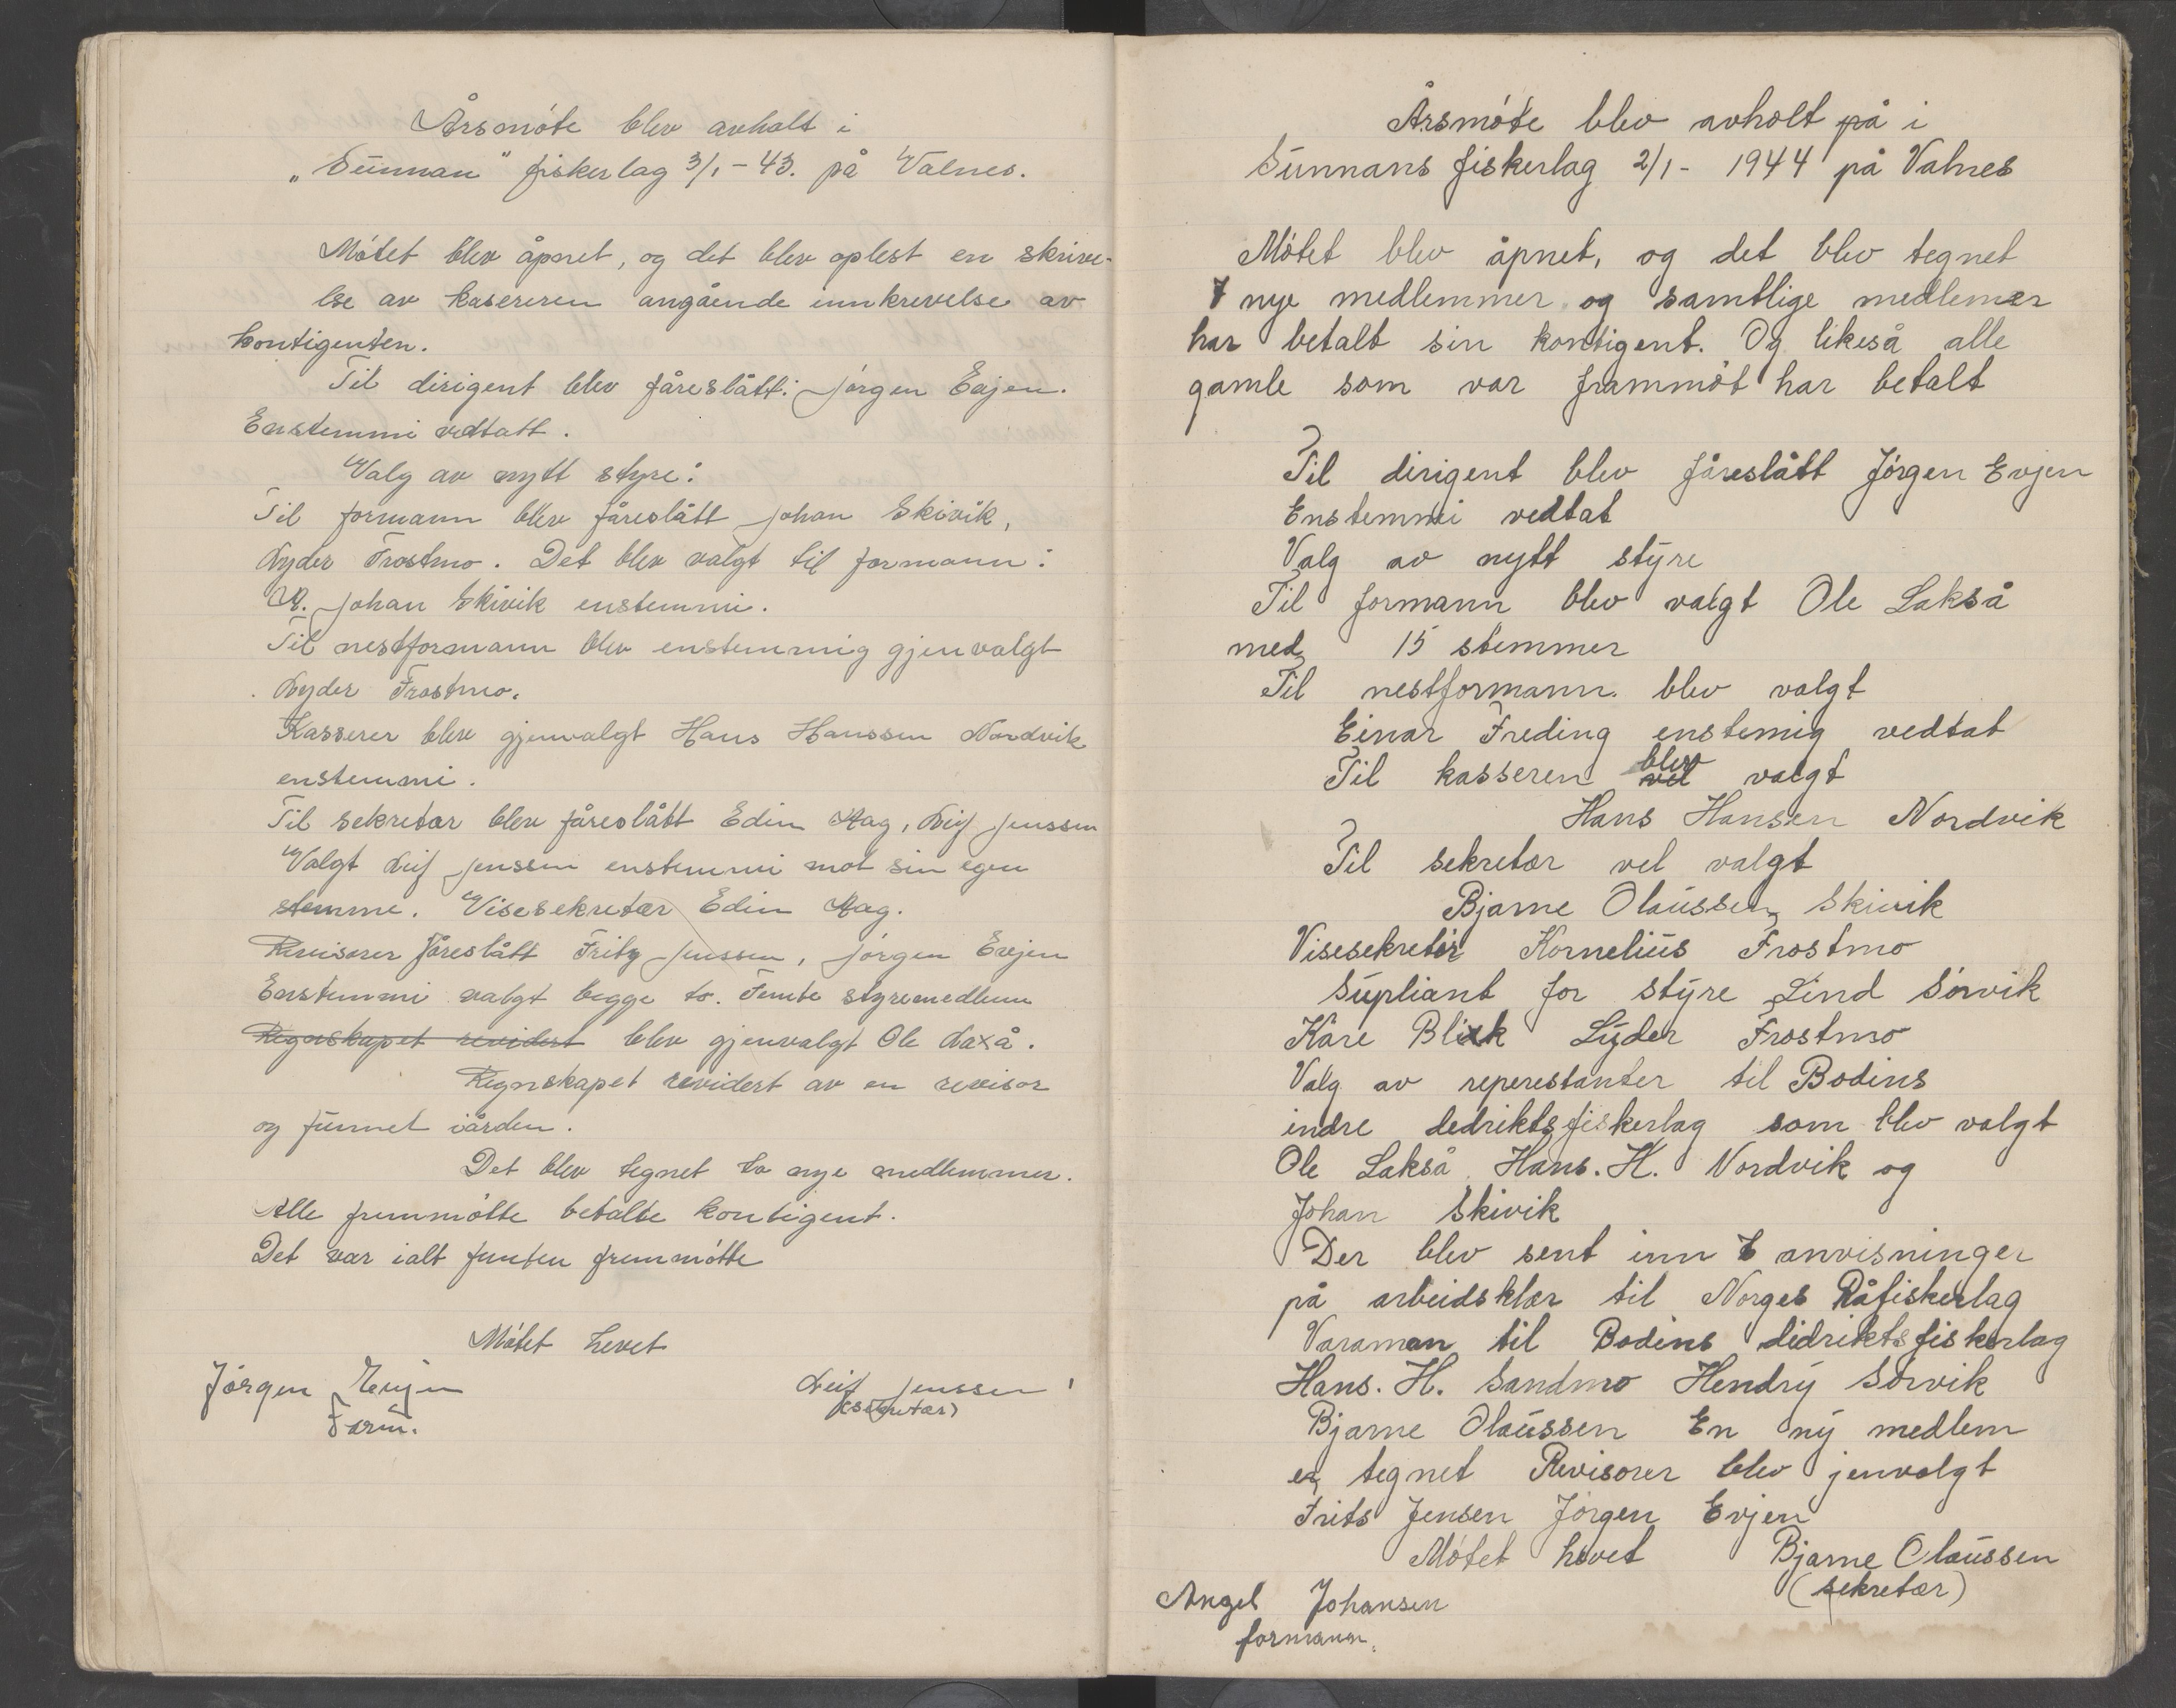 Årsmóte blev avholt i
„Sünnan" fiskerlag 3/1-43. på Valnes.
Mótet blev åpnet, og det blev oplest en skrive-
lse av kasereren angående innkrevelse av
kontigenten.
Til dirigent blev fåreslått: Jórgen Evjen.
Enstemmi vedtatt.
Valg av nytt styre:
Til formann blev fåreslått Johan Skivik,
Lyder Frostmo. Det blev valgt til formann:
Johan Skivik enstemmi.
Til nestformann blev enstemmig gjenvalgt
Lyder Frostmo.
Kasserer blev gjenvalgt Hans Hanssen Nordvik
enstemmi.
Til sekretær blev fåreslått Edin Aag, Leif Jenssen
Valgt Leif Jenssen enstemmi mot sin egen
stemme. Visesekretær Edin Aag.
Revisorer fåreslått Fritz Jenssen, Jórgen Evjen
Enstemmi valgt begge to. Femte styremedlem
Regnskapet revidert blev gjenvalgt Ole Laxå.
Regnskapet revidert av en revisor
og fünnet iården.
Det blev tegnet to nye medlemmer.
Alle fremmótte betalte kontigent.
Det var ialt femten fremmótte
Mótet hevet
Jórgen Evjen
Form.
Leif Jenssen
(sekretær)
Årsmóte blev avholt på i
Sünnans fiskerlag 2/1- 1944 på Valnes
Mótet blev åpnet, og det blev tegnet
7 nye medlemmer og samtlige medlemer
har betalt sin kontigent. Og likeså alle
gamle som var frammót har betalt
Til dirigent blev fåreslått Jórgen Evjen
Enstemmi vedtat
Valg av nytt stÿre
Til formann blev valgt Ole Lakså
med 15 stemmer
Til nestformann blev valgt
Einar Freding enstemig vedtat
Til kasseren blev vel valgt
Hans Hansen Nordvik
Til sekretær vel valgt
Bjarne Olaüssen Skivik
Visesekretær Korneliüs Frostmo
Süpliant for stÿre Lind Sórvik
Kåre Blixk Lÿder Frostmo
Valg av reperestanter til Bodins
indre dedriktsfiskerlag som blev valgt
Ole Lakså Hans. H. Nordvik og
Johan Skivik
Der blev sent inn anvisninger
på arbeidsklær til Norges Råfiskerlag
Varaman til Bodins didriktsfiskerlag
Hans. H. Sandmo Hendrÿ Sórvik
Bjarne Olaüssen En nÿ medlem
er tegnet Revisorer blev jenvalgt
Frits Jensen Jórgen Evjen
Mótet hevet Bjarne Olaüssen
(sekretær)
Angel Johansen
formann.